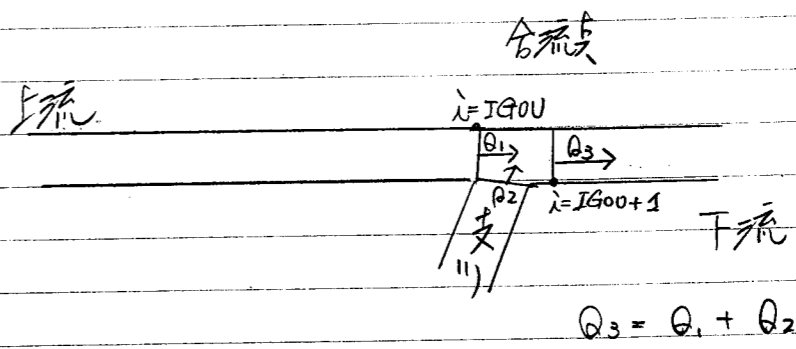 合流点
上流
i=IGOU
Q1
Q3
Q2
i=IGOU+1
支川
下流
Q3 = Q1 + Q2